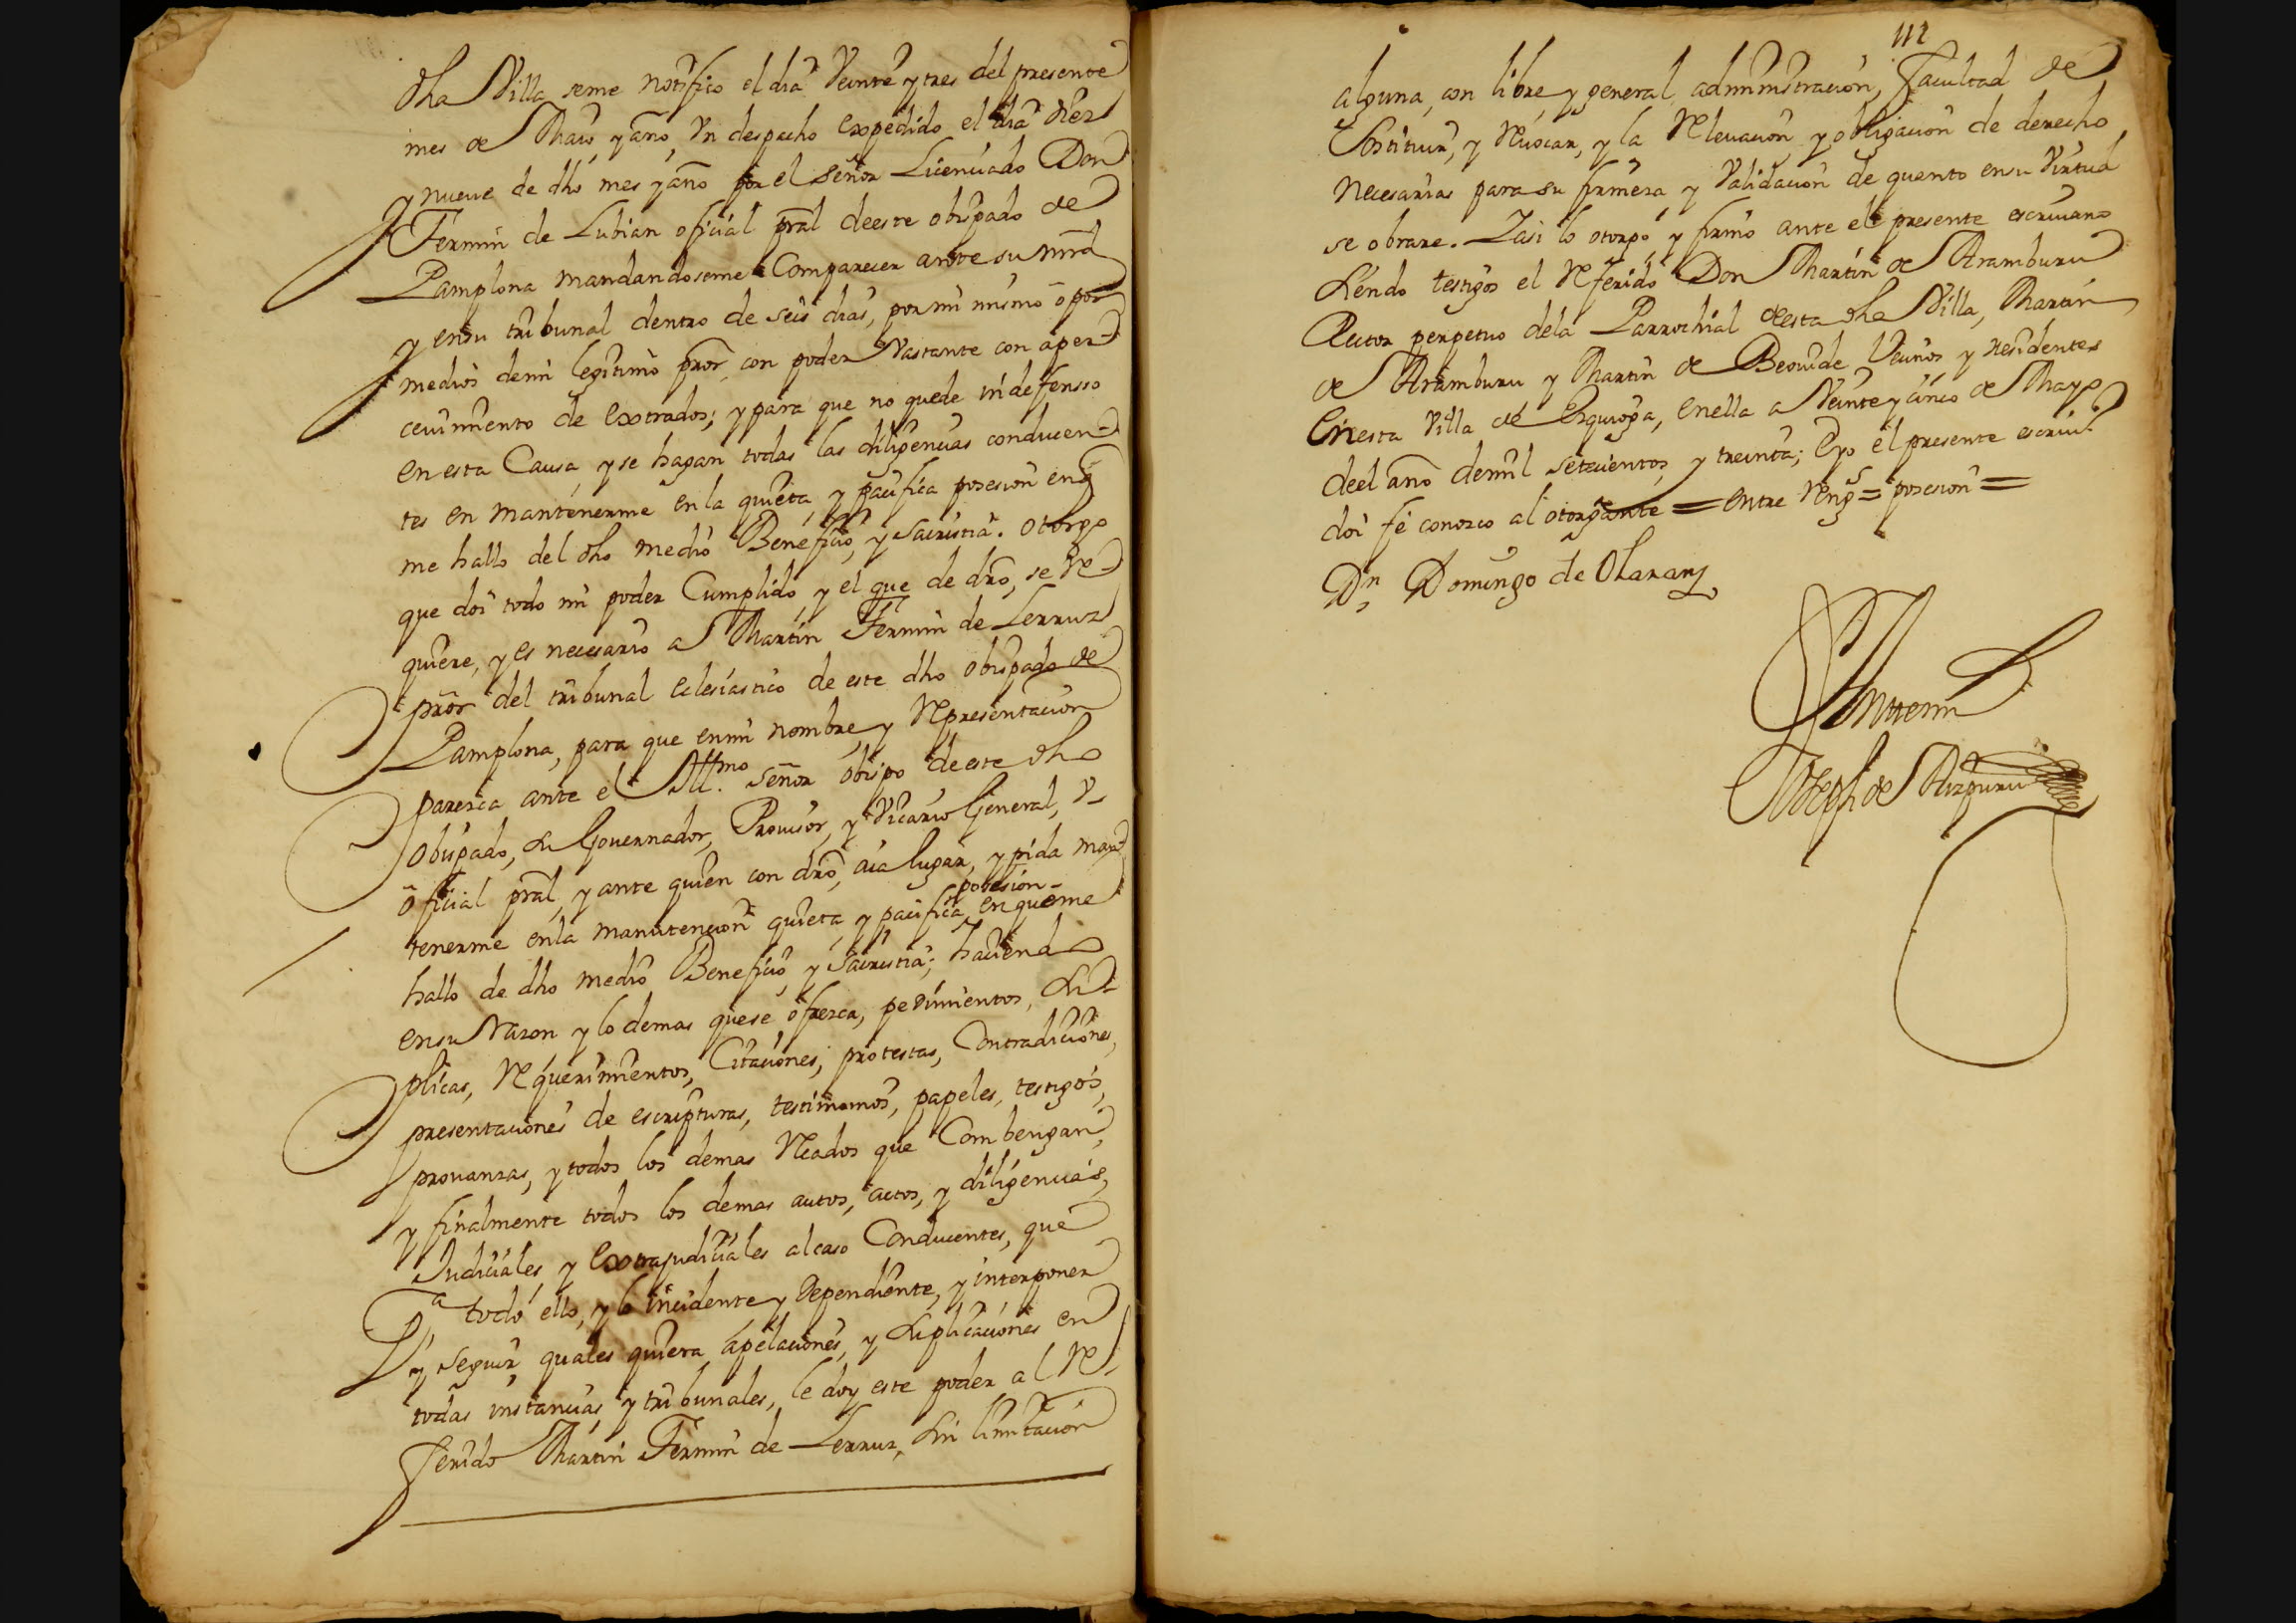 dha Villa, seme notifico el dia Veinte y tres del presente
mes de Maio y año, Vn despacho expedido el dia diez
y nueve de dho mes y año por el señor Licenciado Don
Fermin de Lubian oficial pral deeste obispado de
Pamplona mandandoseme Comparecer ante su mrd
y ensu tribunal dentro de seis dias, por mi mismo o por
medios demi legitimo pror, con poder Vastante con aper-
ceuimiento de extrados; y para que no quede indefensso
en esta Causa, y se hagan todas las diligencias conducen-
tes en mantenerme en la quieta, y pacifica posesion enq
me hallo del dho medio Beneficio, y Sacristia. otorgo
que doi todo mi poder Cumplido, y el que de dro, se Re-
quiere, y es necesario a Martin Fermin de Lerruz
pror del tribunal eclesiastico de este dho obispado de
Pamplona, para que enmi nombre, y Representacion
paresca ante el Illmo. señor obispo deeste dho
Obispado, su Governador, Prouisor, y Vicario General, V-
oficial pral, y ante quien con dro, aia lugar, y pida man-
posesion-
tenerme enla manutencion quieta, y pacifica, en queme
hallo de dho medio Beneficio, y Sacristia; haciendo
ensu Razon y lo demas quese ofrezca, pedimientos, Su-
plicas, Requerimientos, Citaciones, protestas, Contradiciones,
presentaciones de escripturas, testimonios, papeles, testigos,
prouanzas, y todos los demas Rcados que Combengan,
y finalmente todos los demas autos, actos, y diligencias,
Judiciales, y Extrajudiciales alcaso Conducentes, que
Pa todo ello, y lo incidente, y Dependiente, y interponer
y seguir, quales quiera apelaciones, y Suplicaciones en
todas instancias, y tribunales, le doy este poder al Re-
ferido Martin Fermin de Lerruz, Sin limitacion
112
alguna, con libre, y general, administracion, Facultad de
Sostituir, y Reuocar, y la Releuacion, y obligacion de derecho
necesarias para su firmeza, y Validacion de quanto ensu Virtud
se obrare. Yasi lo otorgó, y firmó ante el presente escriuano
Siendo testigos el Referido Don Martin de Aramburu
Rector perpetuo dela Parrochial desta dha Villa, Martin
de Aramburu y Martin de Beouide Vecinos y residentes
Enesta Villa de Ezquioga, enella a Veinte y cinco de Mayo
deel año demil setecientos, y treinta; Eyo el presente escriuo.
doi fé conozco al otorgante = entre Rengs = posesion =
Dn, Domingo de Olaran
Antemi
Joseph de Aizpuru